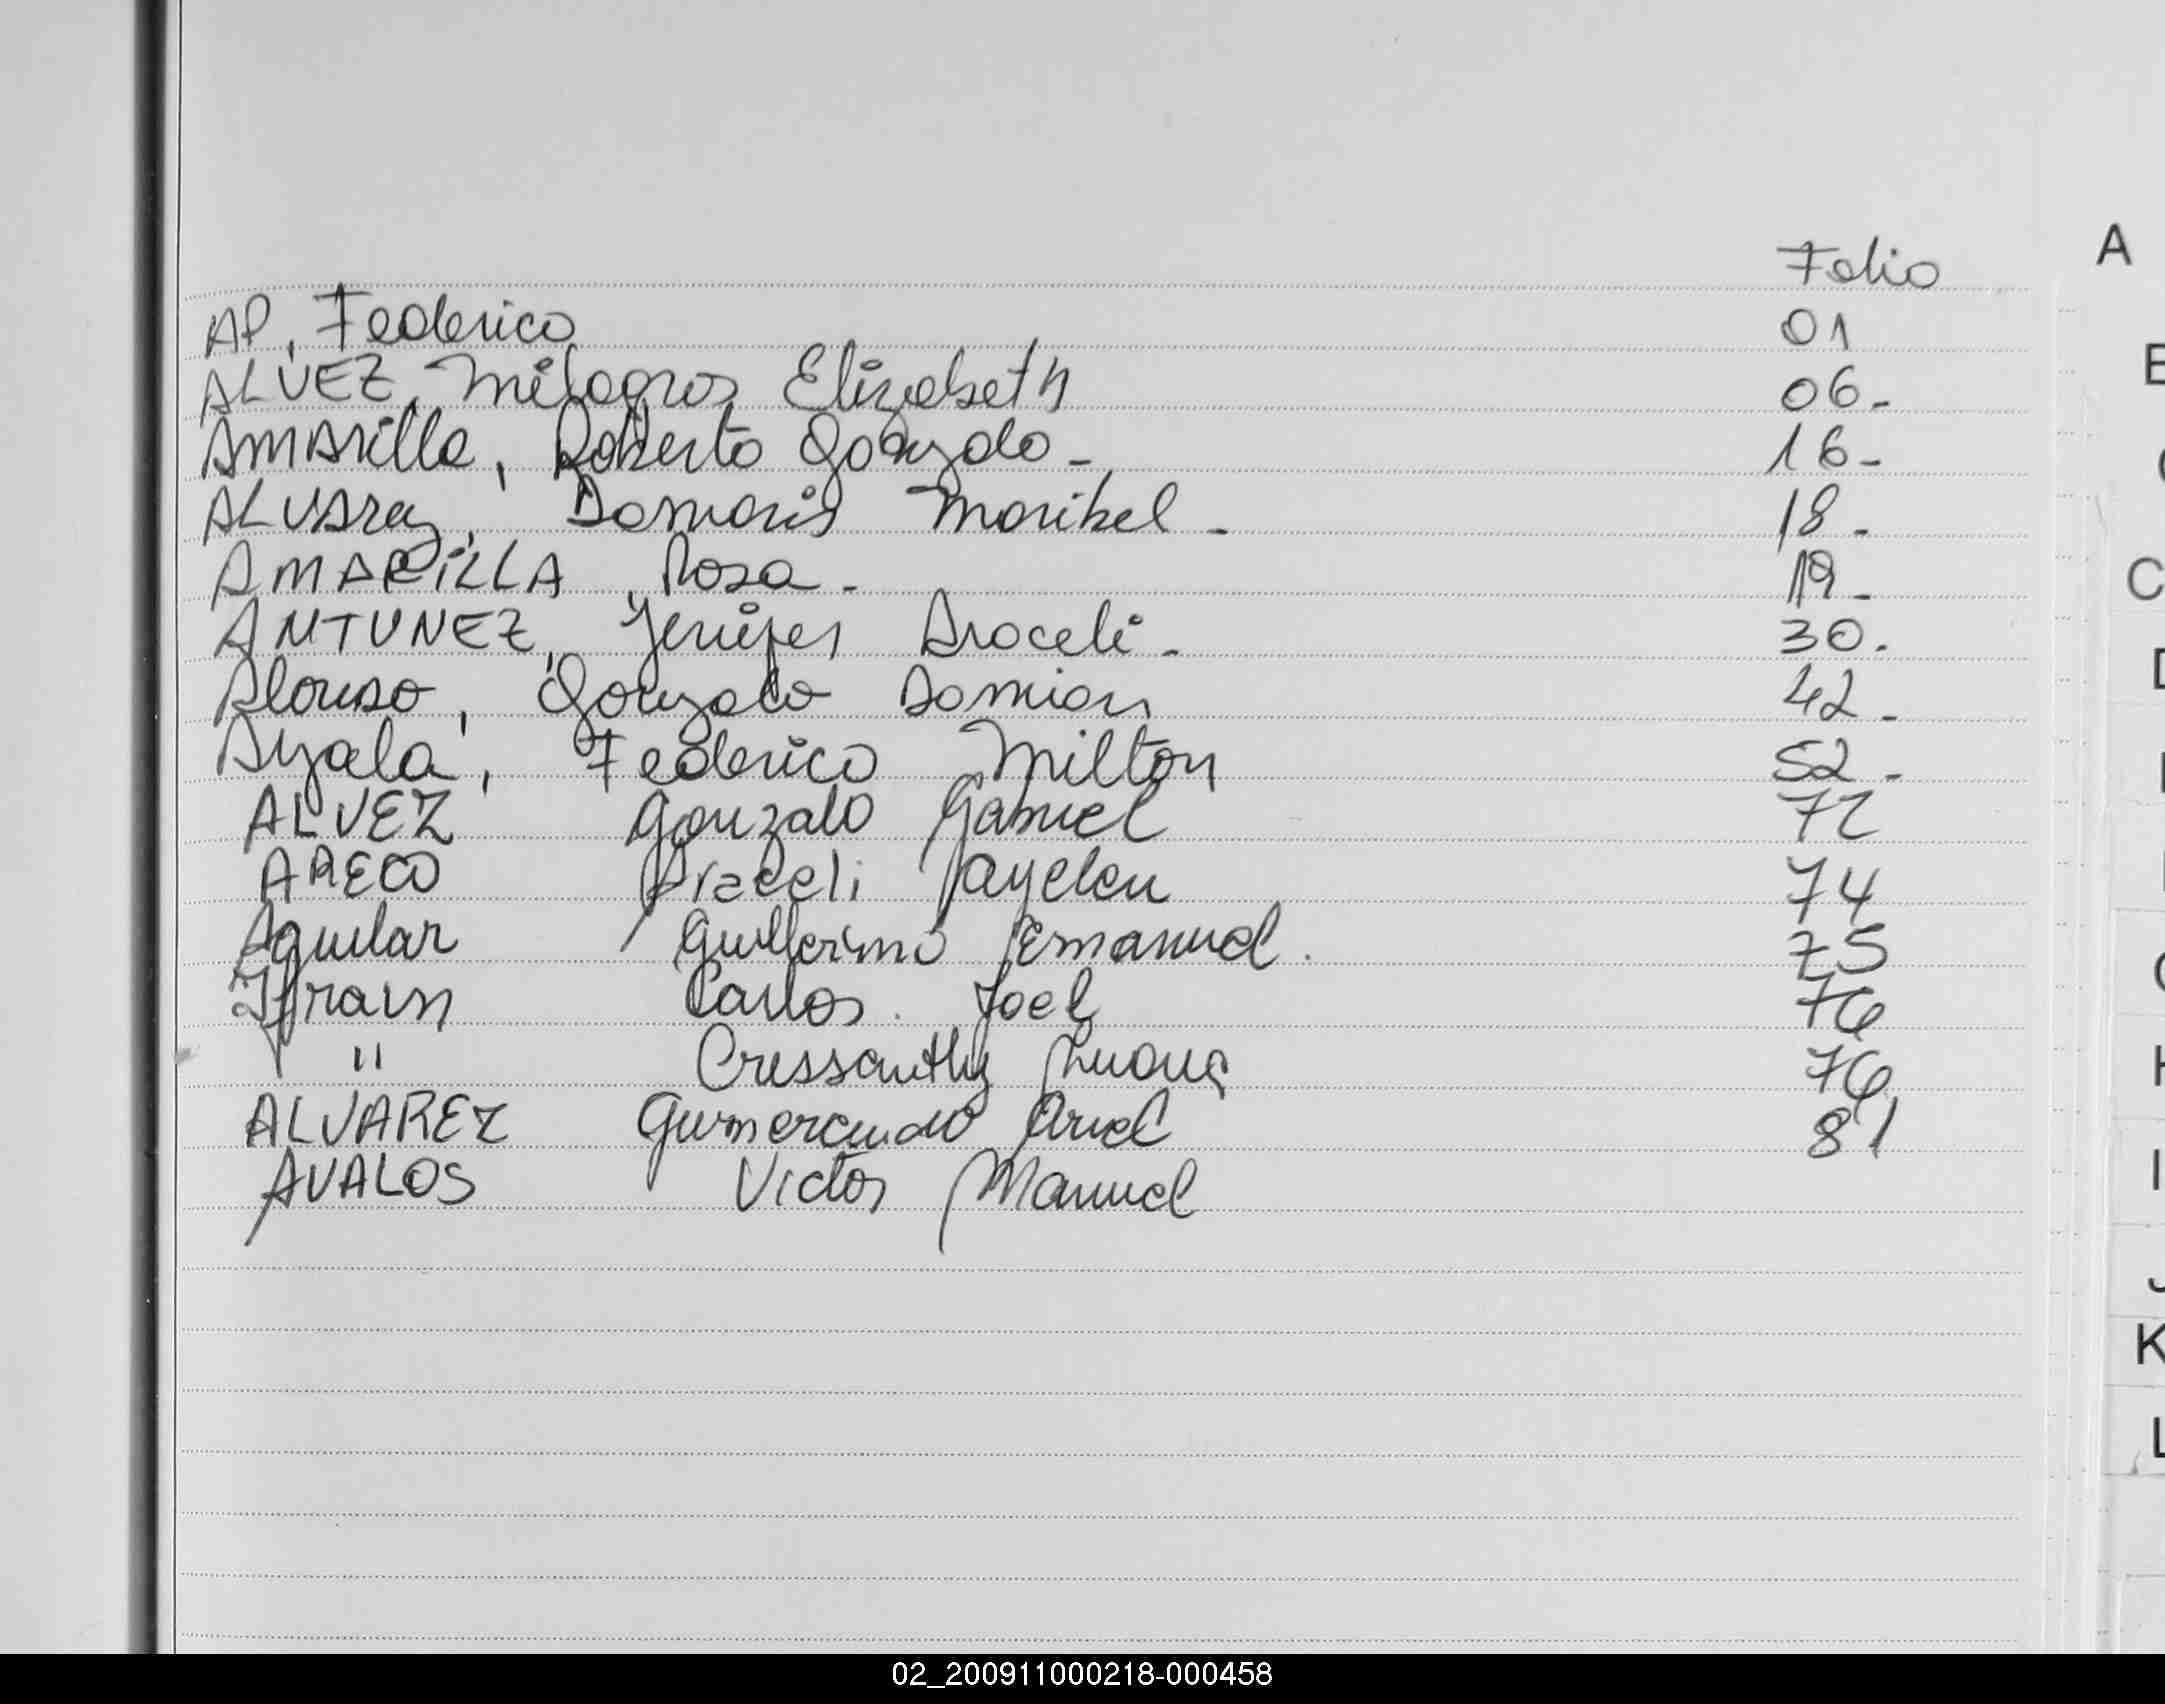 Folio
A
AP, Federico 01
ALVEZ, Milagros Elizabeth 06-
Amarilla, Roberto Gonzalo- 16-
ALVArez, Damaris Maribel- 18-
AMARiLLA, Rosa- 19-
ANTUNEZ, Jenifer Araceli- 30.
Alonso, Gonzalo Damian 42-
Ayala, Federico Milton 52-
ALVEZ Gonzalo Gabriel 72
ARECO Araceli Jayelen 74
Aguilar Guillermo Emanuel. 75
Carlos. Joel 76
" Cressanthy 76
ALVAREZ Gumercindo Ariel 81
AVALOS Victor Manuel
B
C
D
H
I
J
K
L
02_200911000218-000458